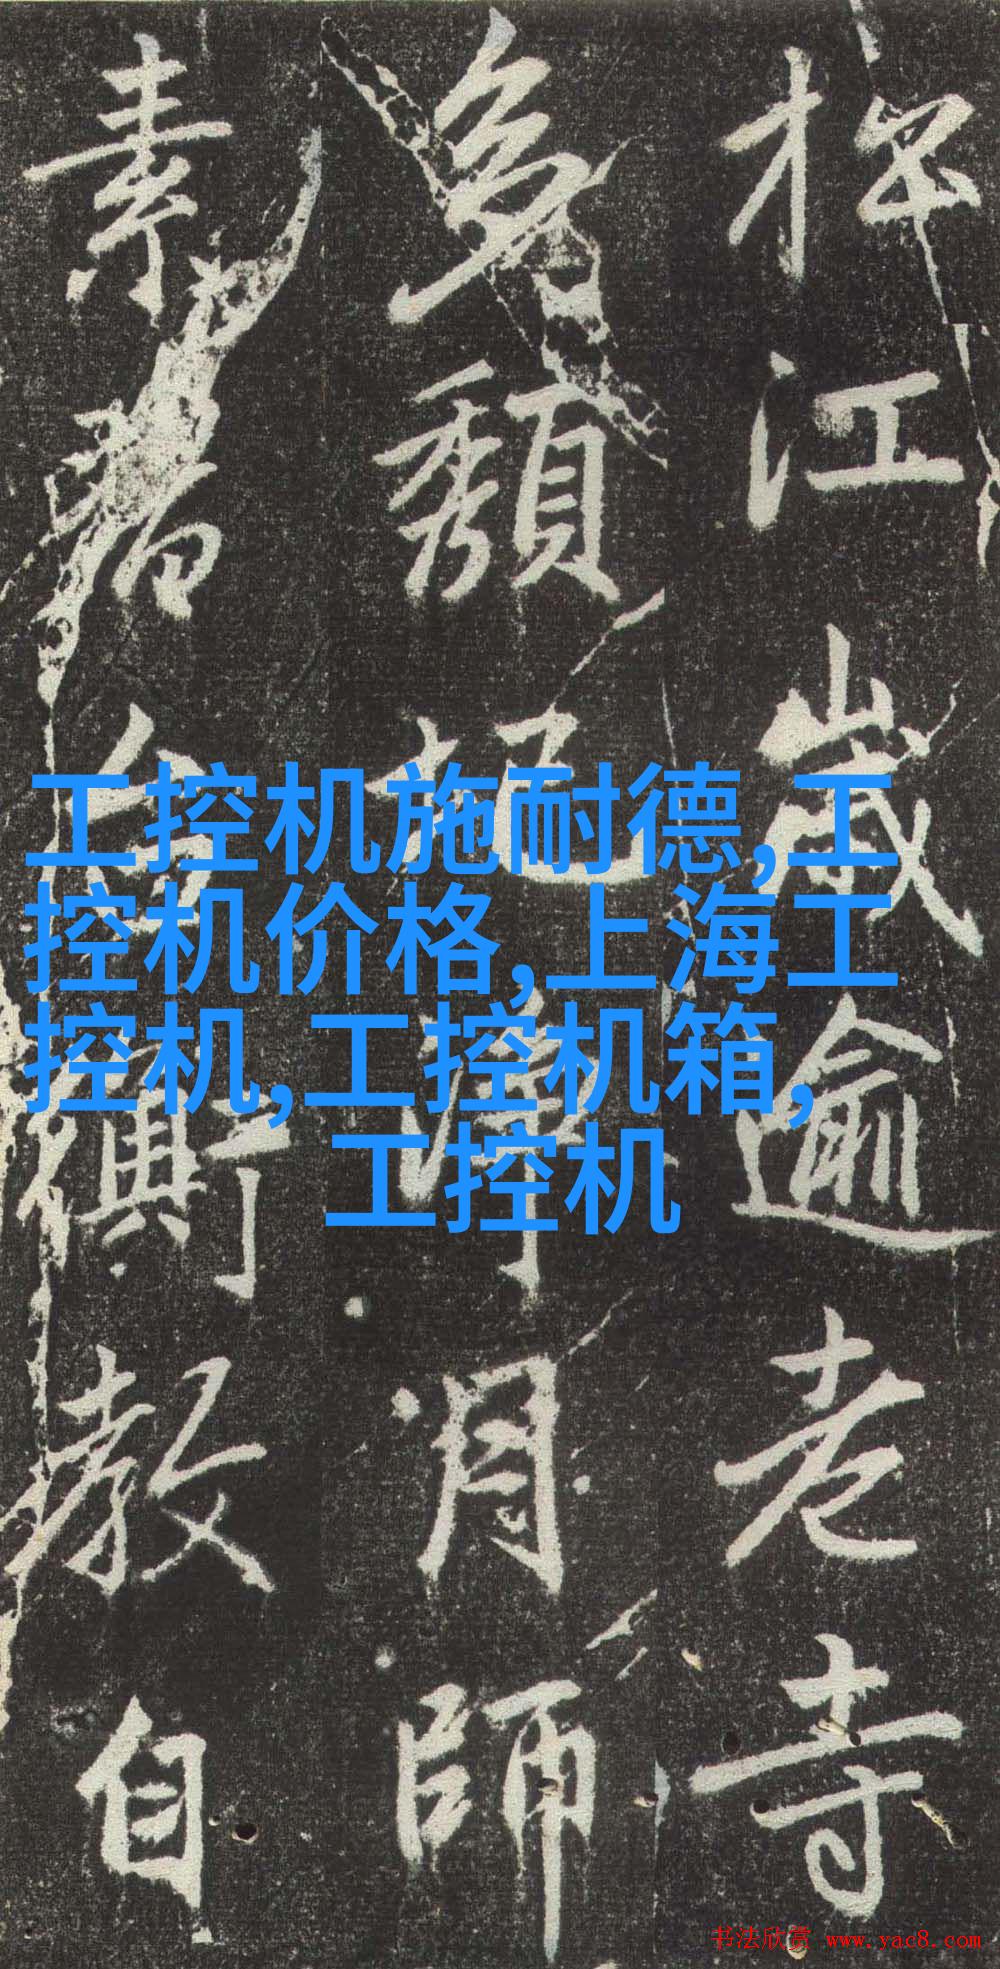 江歲逾老寺
頹圮月師
素教自
工控机施耐德,工
控机价格,上海工
控机,工控机箱,
工控机
书法欣赏 www.yac8.com